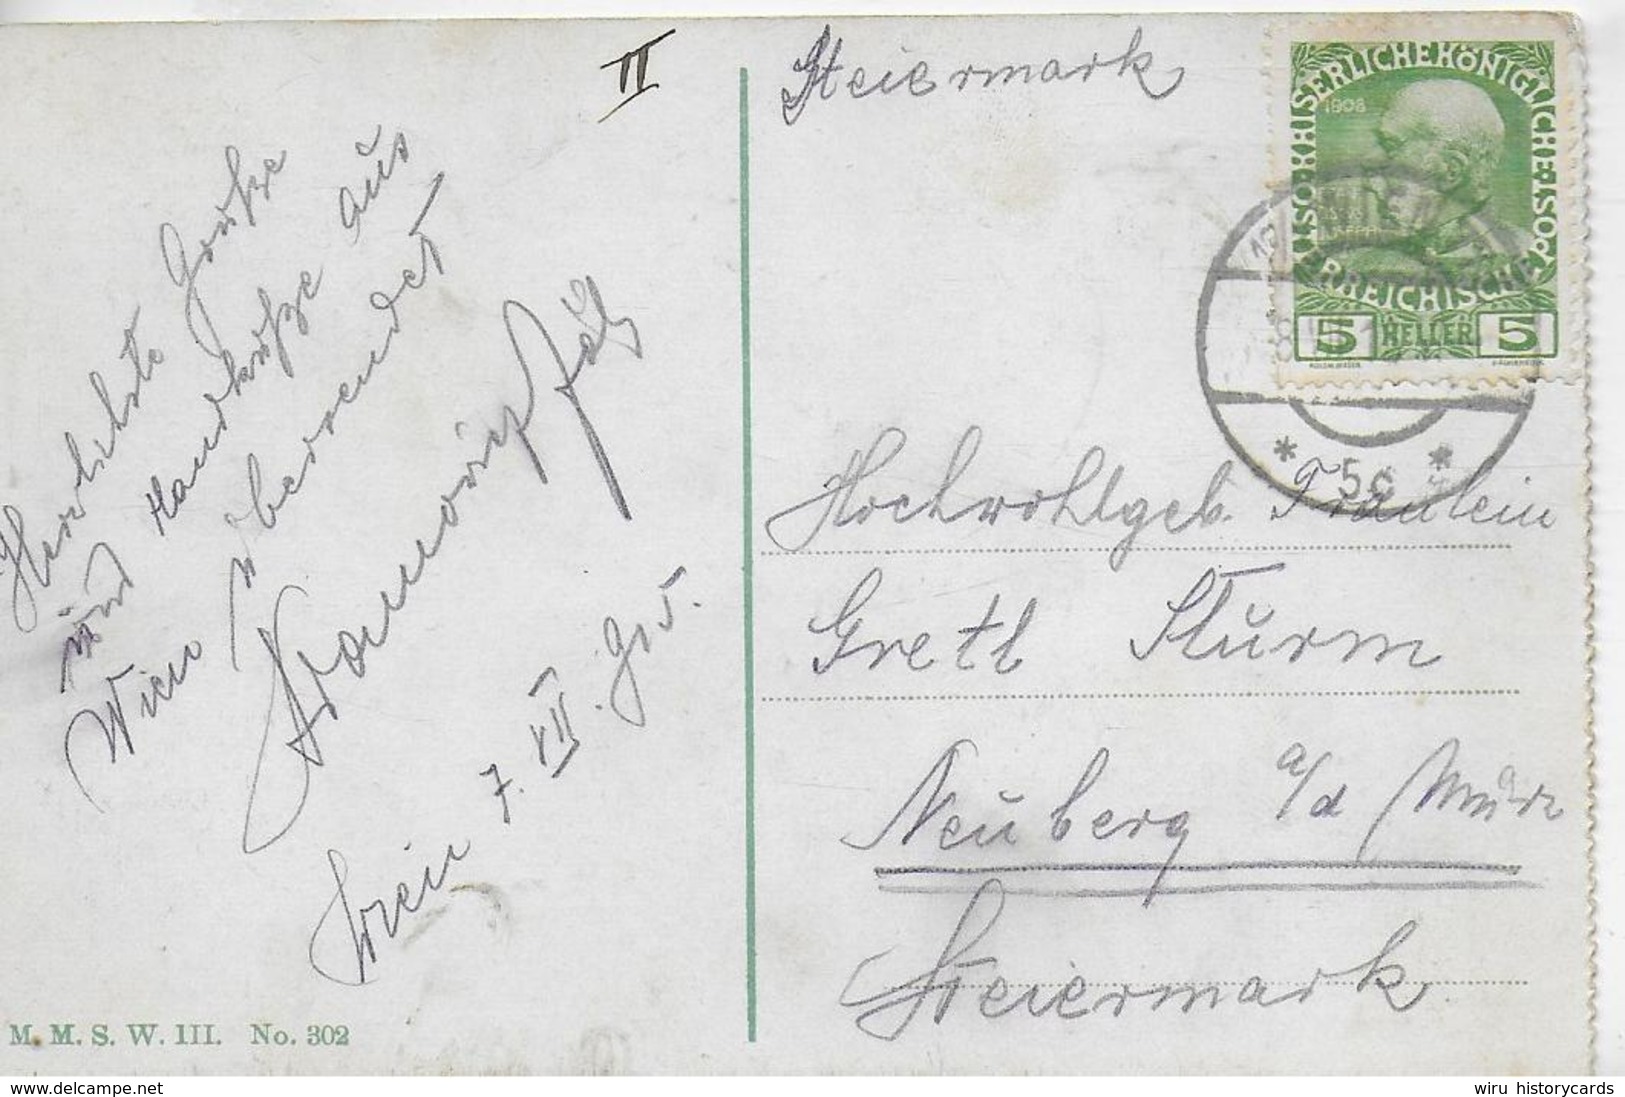 II
Steiermark
KAISERLICHEKÖNIGLICHE
ÖSTERREICHISCHE POST
1908
5 HELLER 5
WIEN
* 5c *
Herzlichste Grüße
und Handküße aus
Wien übersendet
Wien 7. VII.
Hochwohlgeb. Fräulein
Gretl Sturm
Neuberg a/d Mürz
Steiermark
M. M. S. W. III. No. 302
www.delcampe.net
wiru historycards